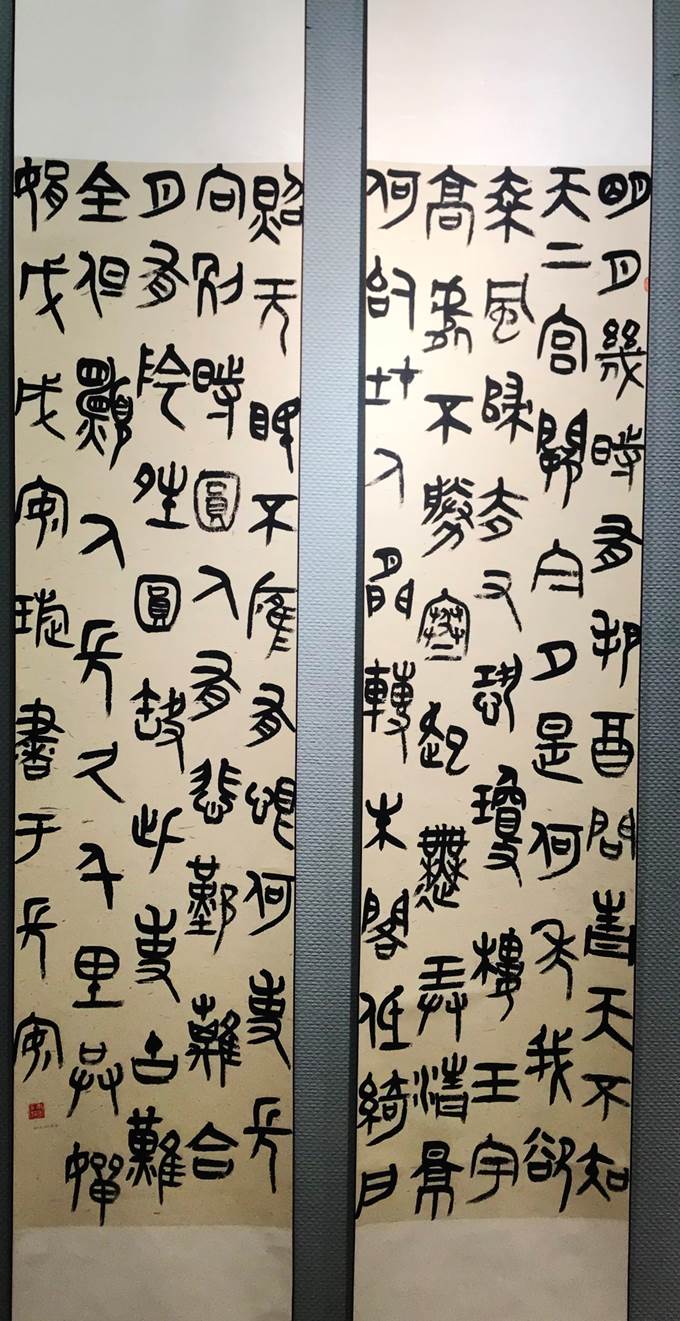 明月幾時有把酒問青天不知
天上宮闕今夕是何年我欲
乘風歸去又恐瓊樓玉宇
高處不勝寒起舞弄清影
何似在人間轉朱閣低綺戶
照無眠不應有恨何事長
向別時圓人有悲歡離合
月有陰晴圓缺此事古難
全但願人長久千里共嬋
娟戊戌安書于長安